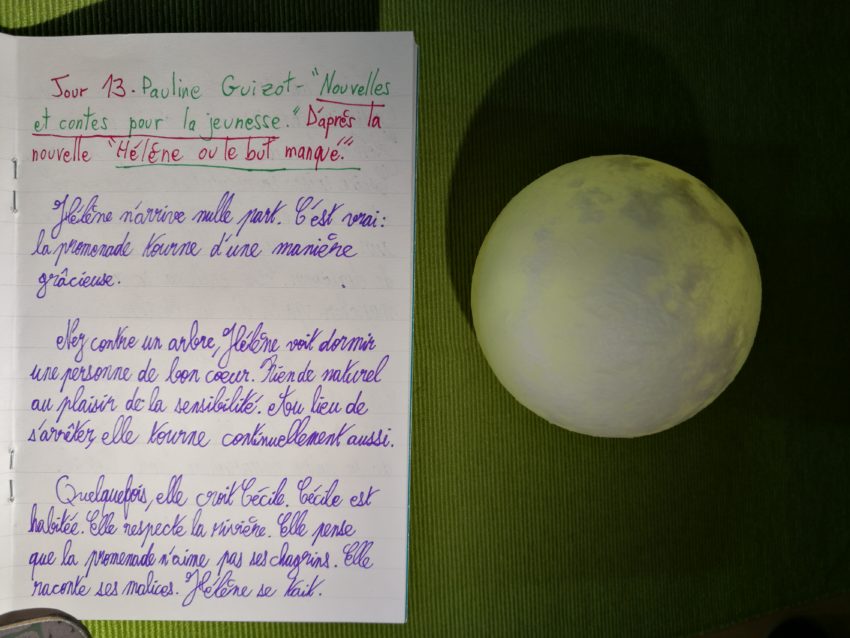 Jour 13. Pauline Guizot - "Nouvelles
et contes pour la jeunesse." D'après la
nouvelle "Hélène ou le but manqué."
Hélène n'arrive nulle part. C'est vrai :
la promenade tourne d'une manière
grâcieuse.
Nez contre un arbre, Hélène voit dormir
une personne de bon coeur. Rien de naturel
au plaisir de la sensibilité. Au lieu de
s'arrêter, elle tourne continuellement aussi.
Quelquefois, elle croit Cécile. Cécile est
habitée. Elle respecte la rivière. Elle pense
que la promenade n'aime pas ses chagrins. Elle
raconte ses malices. Hélène se tait.